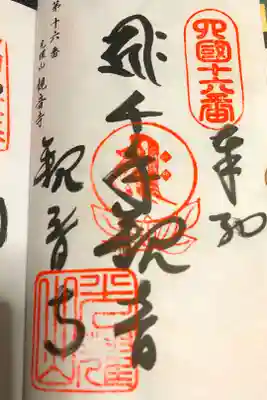 四國十六番
奉納
千手観音
観音寺
光耀山
第十六番
光耀山 観音寺